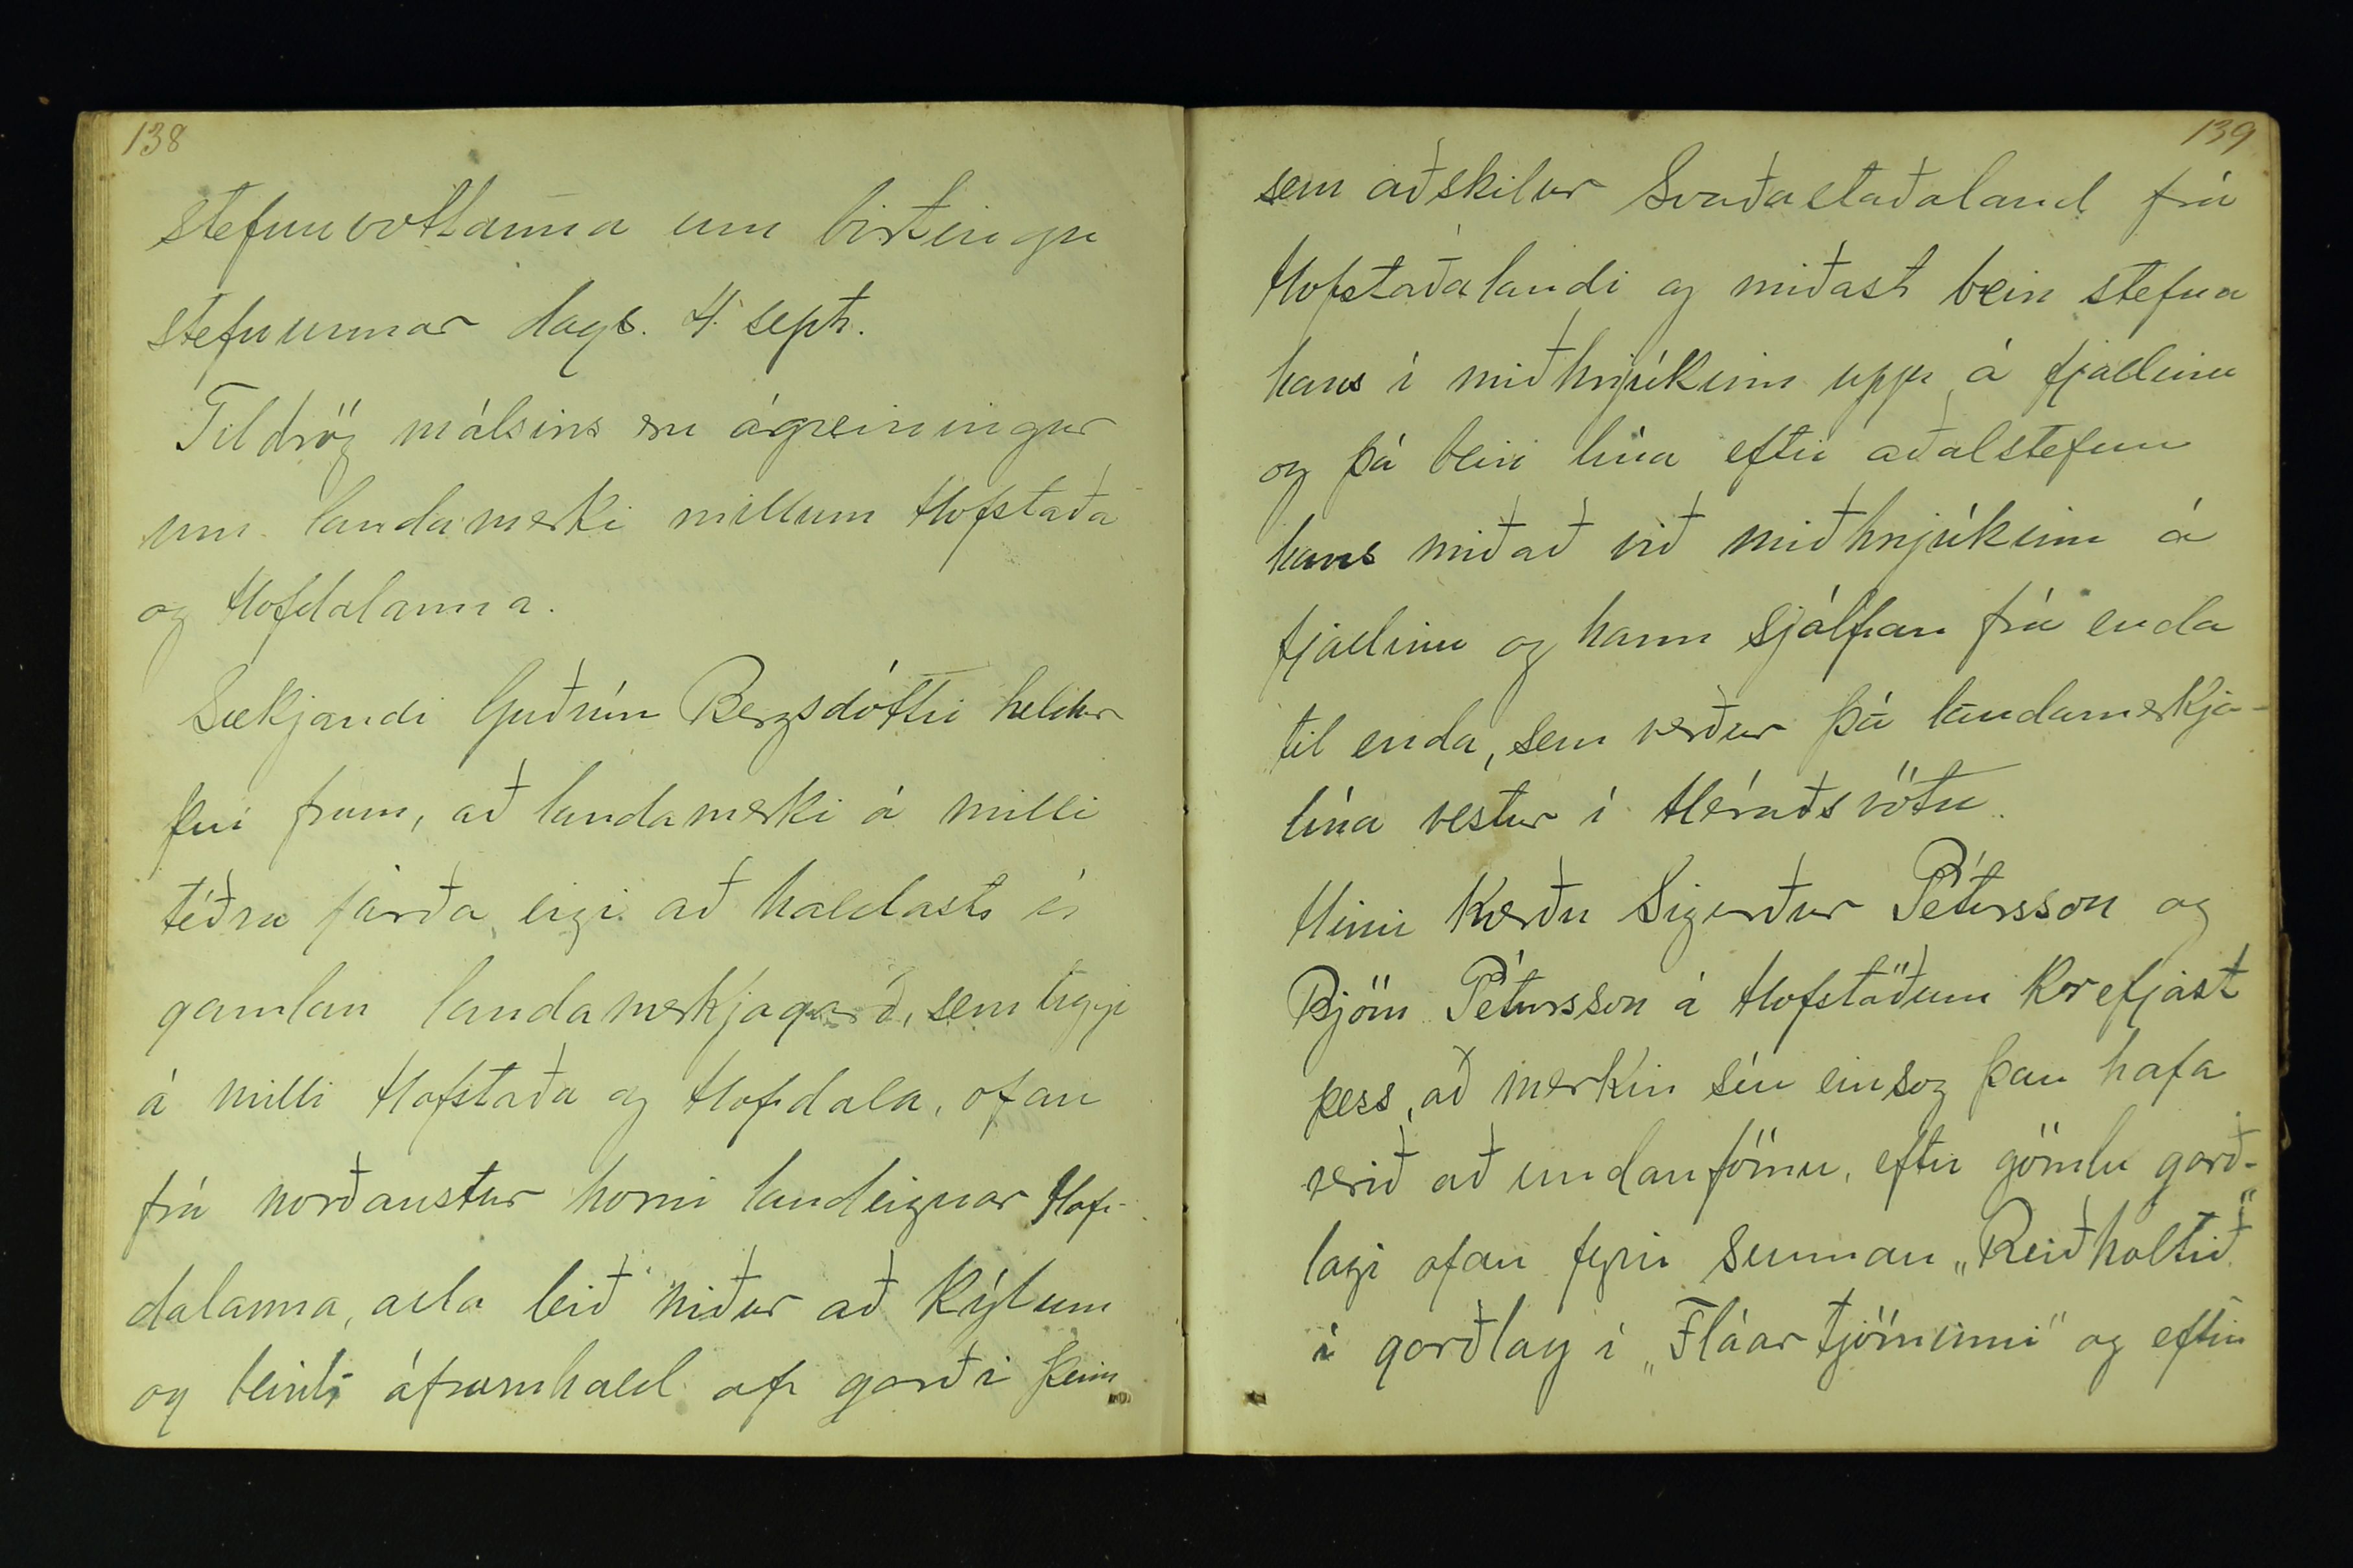 138
stefnuvottanna um birtingu
stefnunnar dags. 4. sept.
Tildrög málsins eru ágreiningur
um landamerki millum Hofstaða
og Hofdalanna.
Sækjandi Guðrún Bergsdóttir heldur
því fram, að landamerki á milli
téðra jarða eigi að haldast í
gamlan landamerkjagarð, sem liggi
á milli Hofstaða og Hofdala, ofan
frá norðaustur horni landeignar Hof-
dalanna, alla leið niður að Kýlum
og beint áframhald af garði þeim
139
sem aðskilur Svaðastaðaland frá
Hofstaðalandi og miðast bein stefna
hans í miðhnjúkinn upp á fjallinu
og þá bein lína eftir aðalstefnu
hans miðað við miðhnjúkinn á
fjallinu og hann sjálfan frá enda
til enda, sem verður þá landamerkja-
lína vestur í Héraðsvötn.
Hinir kærðu Sigurður Pétursson og
Björn Pétursson á Hofstöðum krefjast
þess, að merkin séu einsog þau hafa
verið að undanförnu, eftir gömlu garð-
lagi ofan fyrir sunnan „Reiðholtið“
í garðlag í „Fláartjörninni“ og eftir